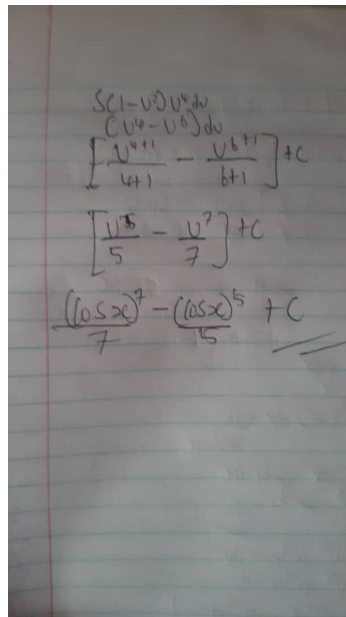 S(1-U²)U⁴du
(U⁴-U⁶)du
[U⁴⁺¹/4+1 - U⁶⁺¹/6+1]+C
[U⁵/5 - U⁷/7]+C
(Cosx)⁷/7 - (Cosx)⁵/5 + C